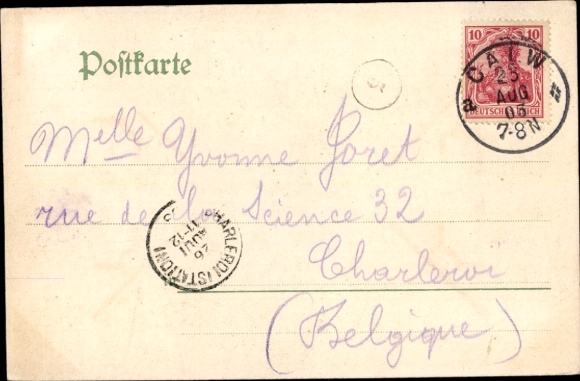 Postkarte
10 10
DEUTSCHES REICH
CALW
25
AUG
05
7-8N
5
Melle Yvonne Foret
rue de la Science 32
Charleroi
(Belgique)
CHARLEROI (STATION)
26
AOUT
11-12